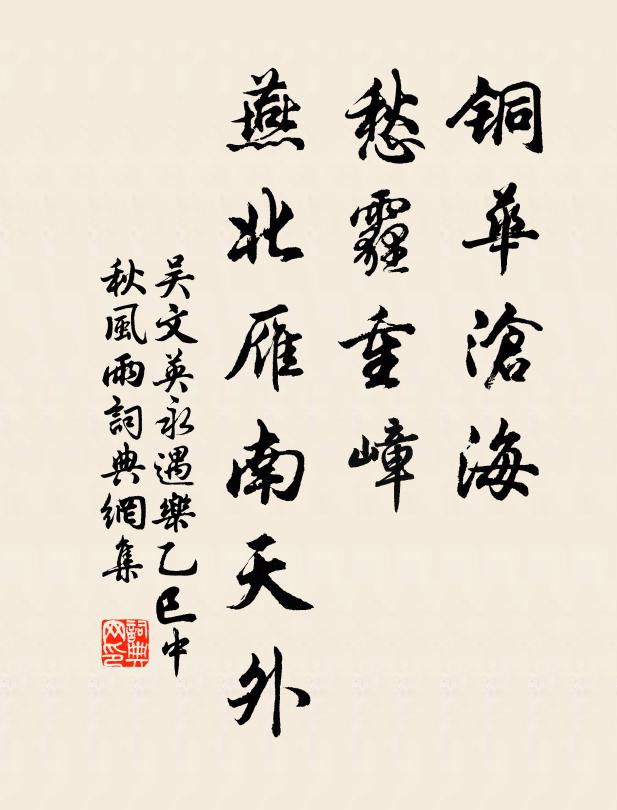 銅華滄海
愁霾重嶂
燕北雁南天外
吴文英永遇樂乙巳中
秋風雨詞典網集
詞典
网印